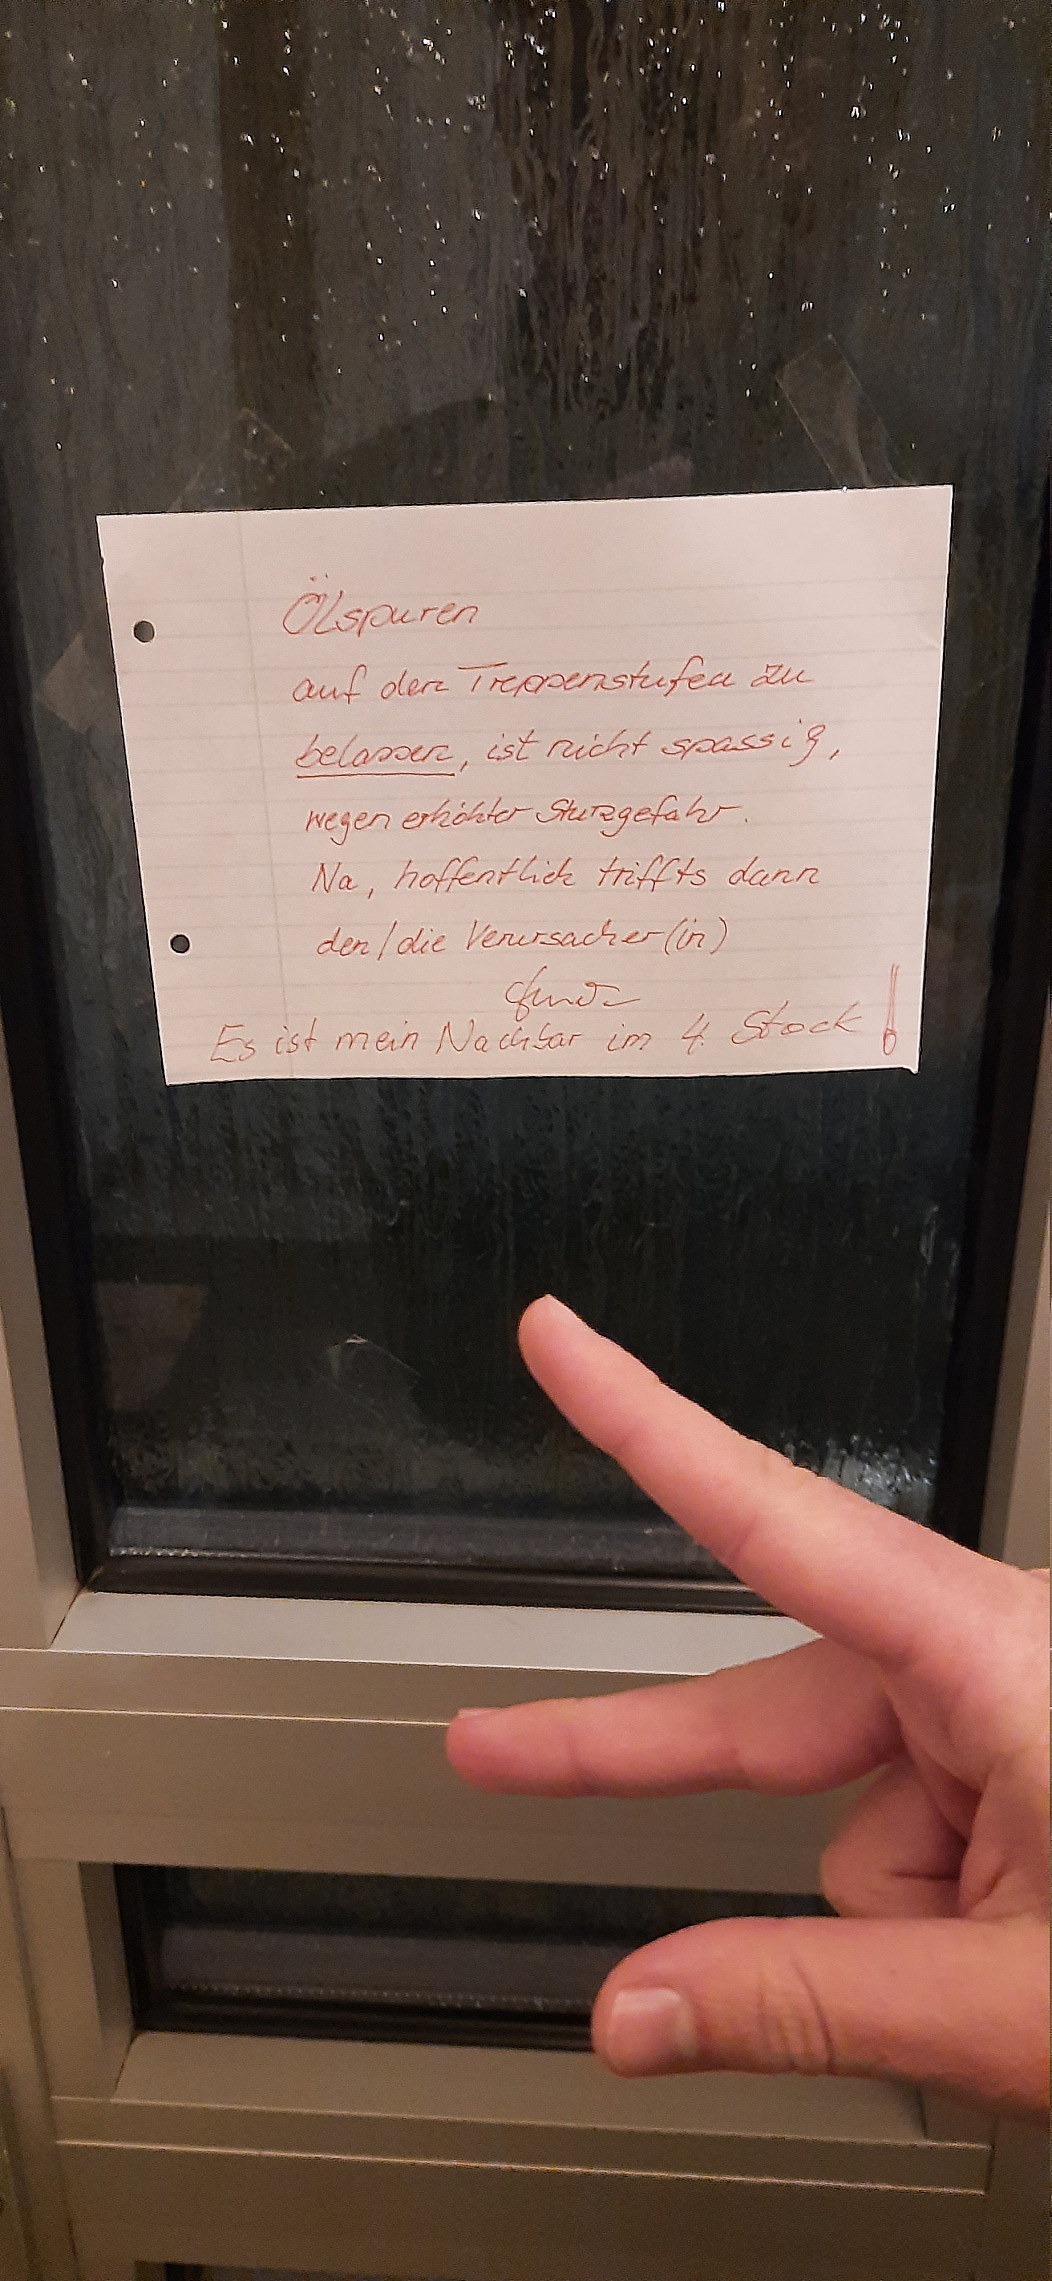 Ölspuren
auf den Treppenstufen zu
belassen, ist nicht spassig,
wegen erhöhter Sturzgefahr.
Na, hoffentlich triffts dann
den/die Verursacher(in)
Es ist mein Nachbar im 4. Stock !